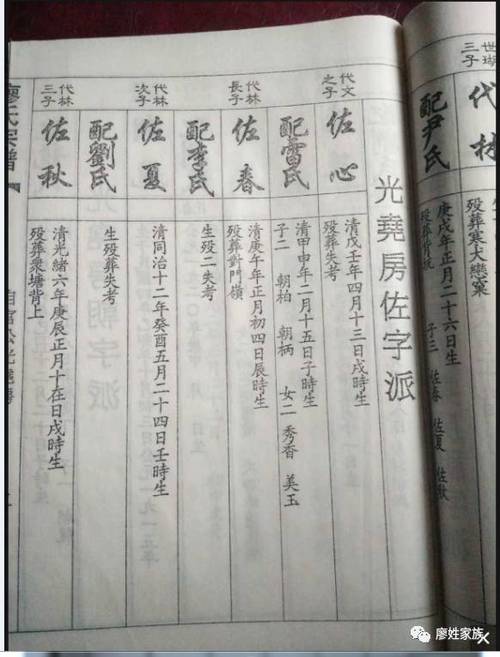 世瑚
三子
代林
殁葬寒大戀窠
配尹氏
庚戌年正月二十六日生
殁葬背
子三 佐春 佐夏 佐秋
光堯房佐字派
代文
之子
佐心
清戊壬年四月十三日戌時生
殁葬失考
配雷氏
清甲申年二月十五日子時生
子二 朝柏 朝柄 女二 秀香 美玉
代林
長子
佐春
清庚午年正月初四日辰時生
殁葬對門嶺
配李氏
生殁二失考
代林
次子
佐夏
清同治十二年癸酉五月二十四日壬時生
配劉氏
生殁葬失考
代林
三子
佐秋
清光緒六年庚辰正月十在日戌時生
殁葬衆塘背上
廖氏宗譜
廖姓家族